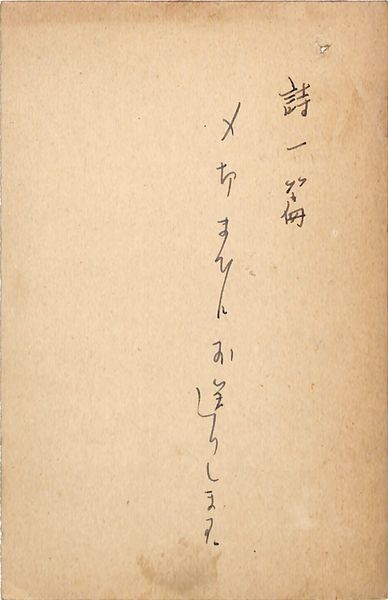 詩一篇
〆切までにお送りします